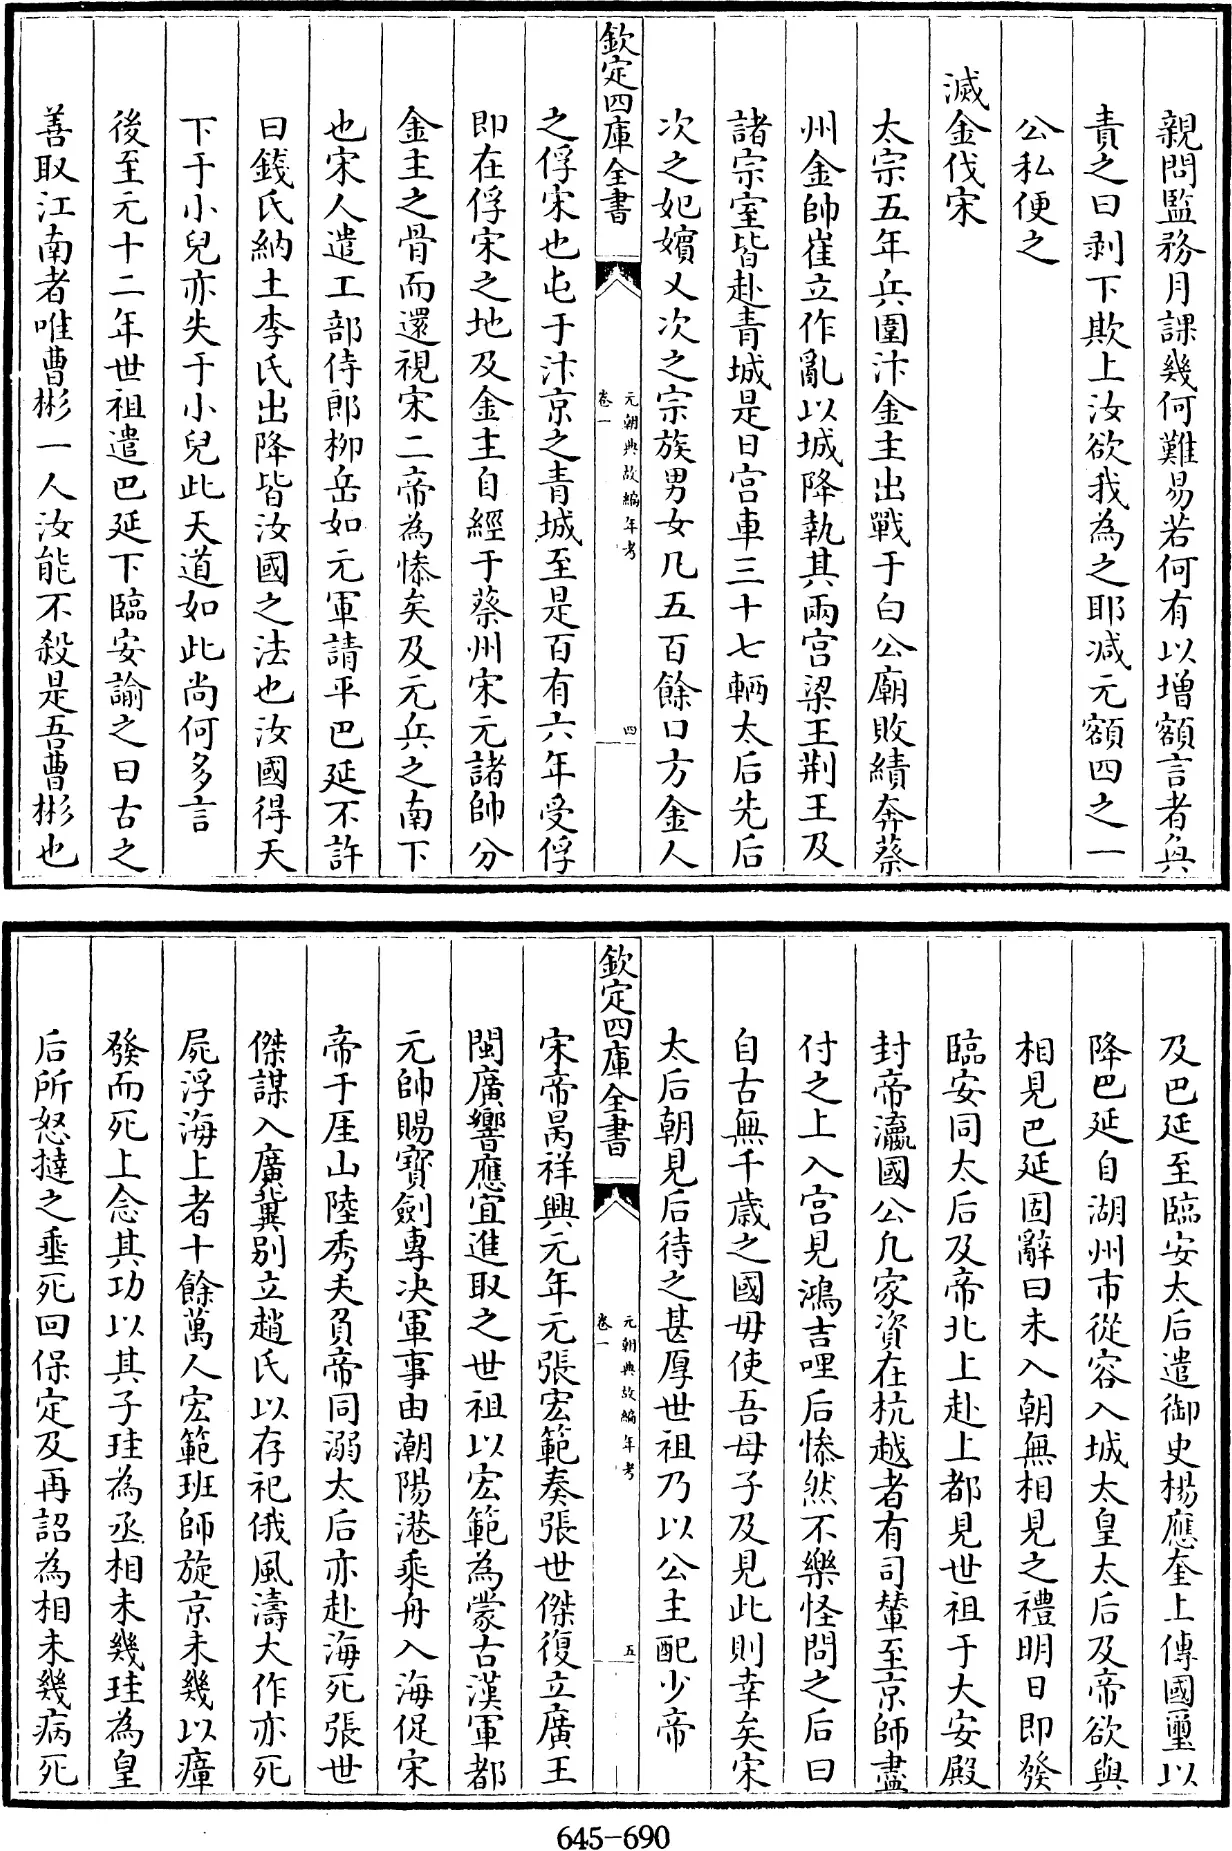 親問監務月課幾何難易若何有以增額言者輿
責之曰剥下欺上汝欲我為之耶减元額四之一
公私便之
滅金伐宋
太宗五年兵圍汴金主出戰于白公廟敗績奔蔡
州金帥崔立作亂以城降執其兩宫梁王荆王及
諸宗室皆赴青城是日宫車三十七輛太后先后
次之妃嬪又次之宗族男女凡五百餘口方金人
欽定四庫全書
元朝典故編年考
卷一
四
之俘宋也屯于汴京之青城至是百有六年受俘
即在俘宋之地及金主自經于蔡州宋元諸帥分
金主之骨而還視宋二帝為慘矣及元兵之南下
也宋人遣工部侍郎柳岳如元軍請平巴延不許
曰錢氏納土李氏出降皆汝國之法也汝國得天
下于小兒亦失于小兒此天道如此尚何多言
後至元十二年世祖遣巴延下臨安諭之曰古之
善取江南者唯曹彬一人汝能不殺是吾曹彬也
及巴延至臨安太后遣御史楊應奎上傳國璽以
降巴延自湖州市從容入城太皇太后及帝欲與
相見巴延固辭曰未入朝無相見之禮明日即發
臨安同太后及帝北上赴上都見世祖于大安殿
封帝瀛國公凡家資在杭越者有司輦至京師盡
付之上入宫見鴻吉哩后慘然不樂怪問之后曰
自古無千歲之國毋使吾母子及見此則幸矣宋
太后朝見后待之甚厚世祖乃以公主配少帝
欽定四庫全書
元朝典故編年考
卷一
五
宋帝昺祥興元年元張宏範奏張世傑復立廣王
閩廣響應宜進取之世祖以宏範為蒙古漢軍都
元帥賜寳劍專决軍事由潮陽港乘舟入海促宋
帝于厓山陸秀夫負帝同溺太后亦赴海死張世
傑謀入廣冀别立趙氏以存祀俄風濤大作亦死
屍浮海上者十餘萬人宏範班師旋京未幾以瘴
發而死上念其功以其子珪為丞相未幾珪為皇
后所怒撻之垂死回保定及再詔為相未幾病死
645-690